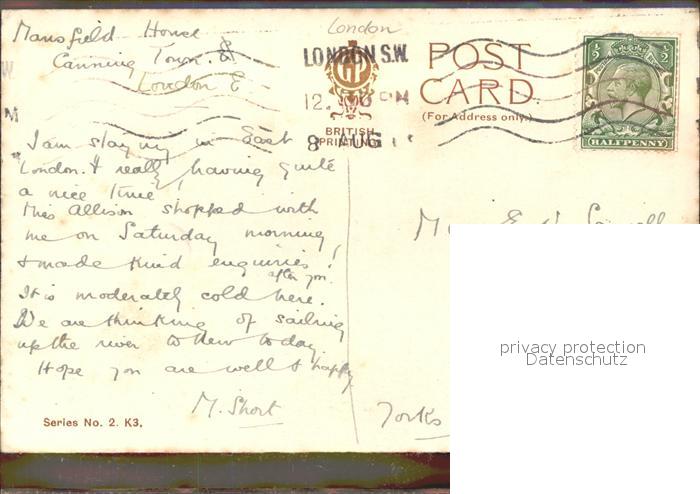 Mansfield House
Canning Town
London E
London
LONDON. S.W.
8 AUG
BRITISH
PRINTING
POST
CARD.
(For Address only.)
½ ½
HALFPENNY
I am staying in East
London & really having quite
a nice time!
Miss Allison shopped with
me on Saturday morning
& made kind enquiries
after you!
It is moderately cold here.
We are thinking of sailing
up the river to Kew to day.
Hope you are well & happy
M. Short
Yorks
Series No. 2. K3.
privacy protection
Datenschutz